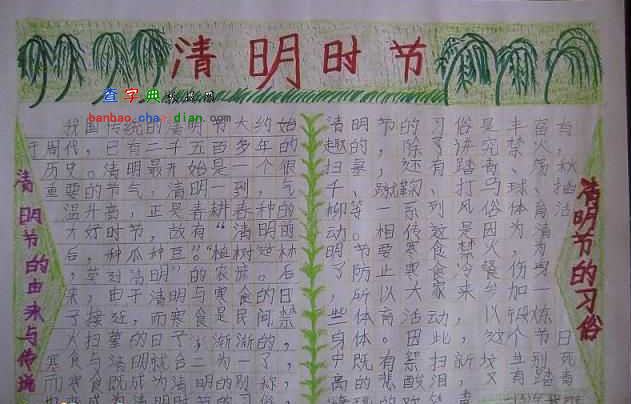 清明时节
查字典
banbao.chazidian.com
清明节的由来与传说
我国传统的清明节大约始
于周代，已有二千五百多年的
历史。清明最开始是一个很
重要的节气，清明一到，气
温升高，正是春耕春种的
大好时节，故有“清明前
后，种瓜种豆。”“植树造林
，莫过清明”的农谚。后
来，由于清明与寒食的日
子接近，而寒食是民间禁
火扫墓的日子，渐渐的，
寒食与清明就合二为一了，
而寒食既成为清明的别称，
也变成为清明时节的习俗，
清明节的习俗是丰富有
趣的，除了讲究禁火，
扫墓，还有踏青、荡秋
千、蹴鞠、打马球、插
柳等一系列风俗体育活
动。相传这是因为清
明节要寒食禁火，为
了防止寒食冷餐伤身
，所以大家来参加一
些体育活动，以锻炼
身体。因此，这个节日
中既有祭扫新坟生别死
离的悲酸泪，又有踏青
清明节的习俗